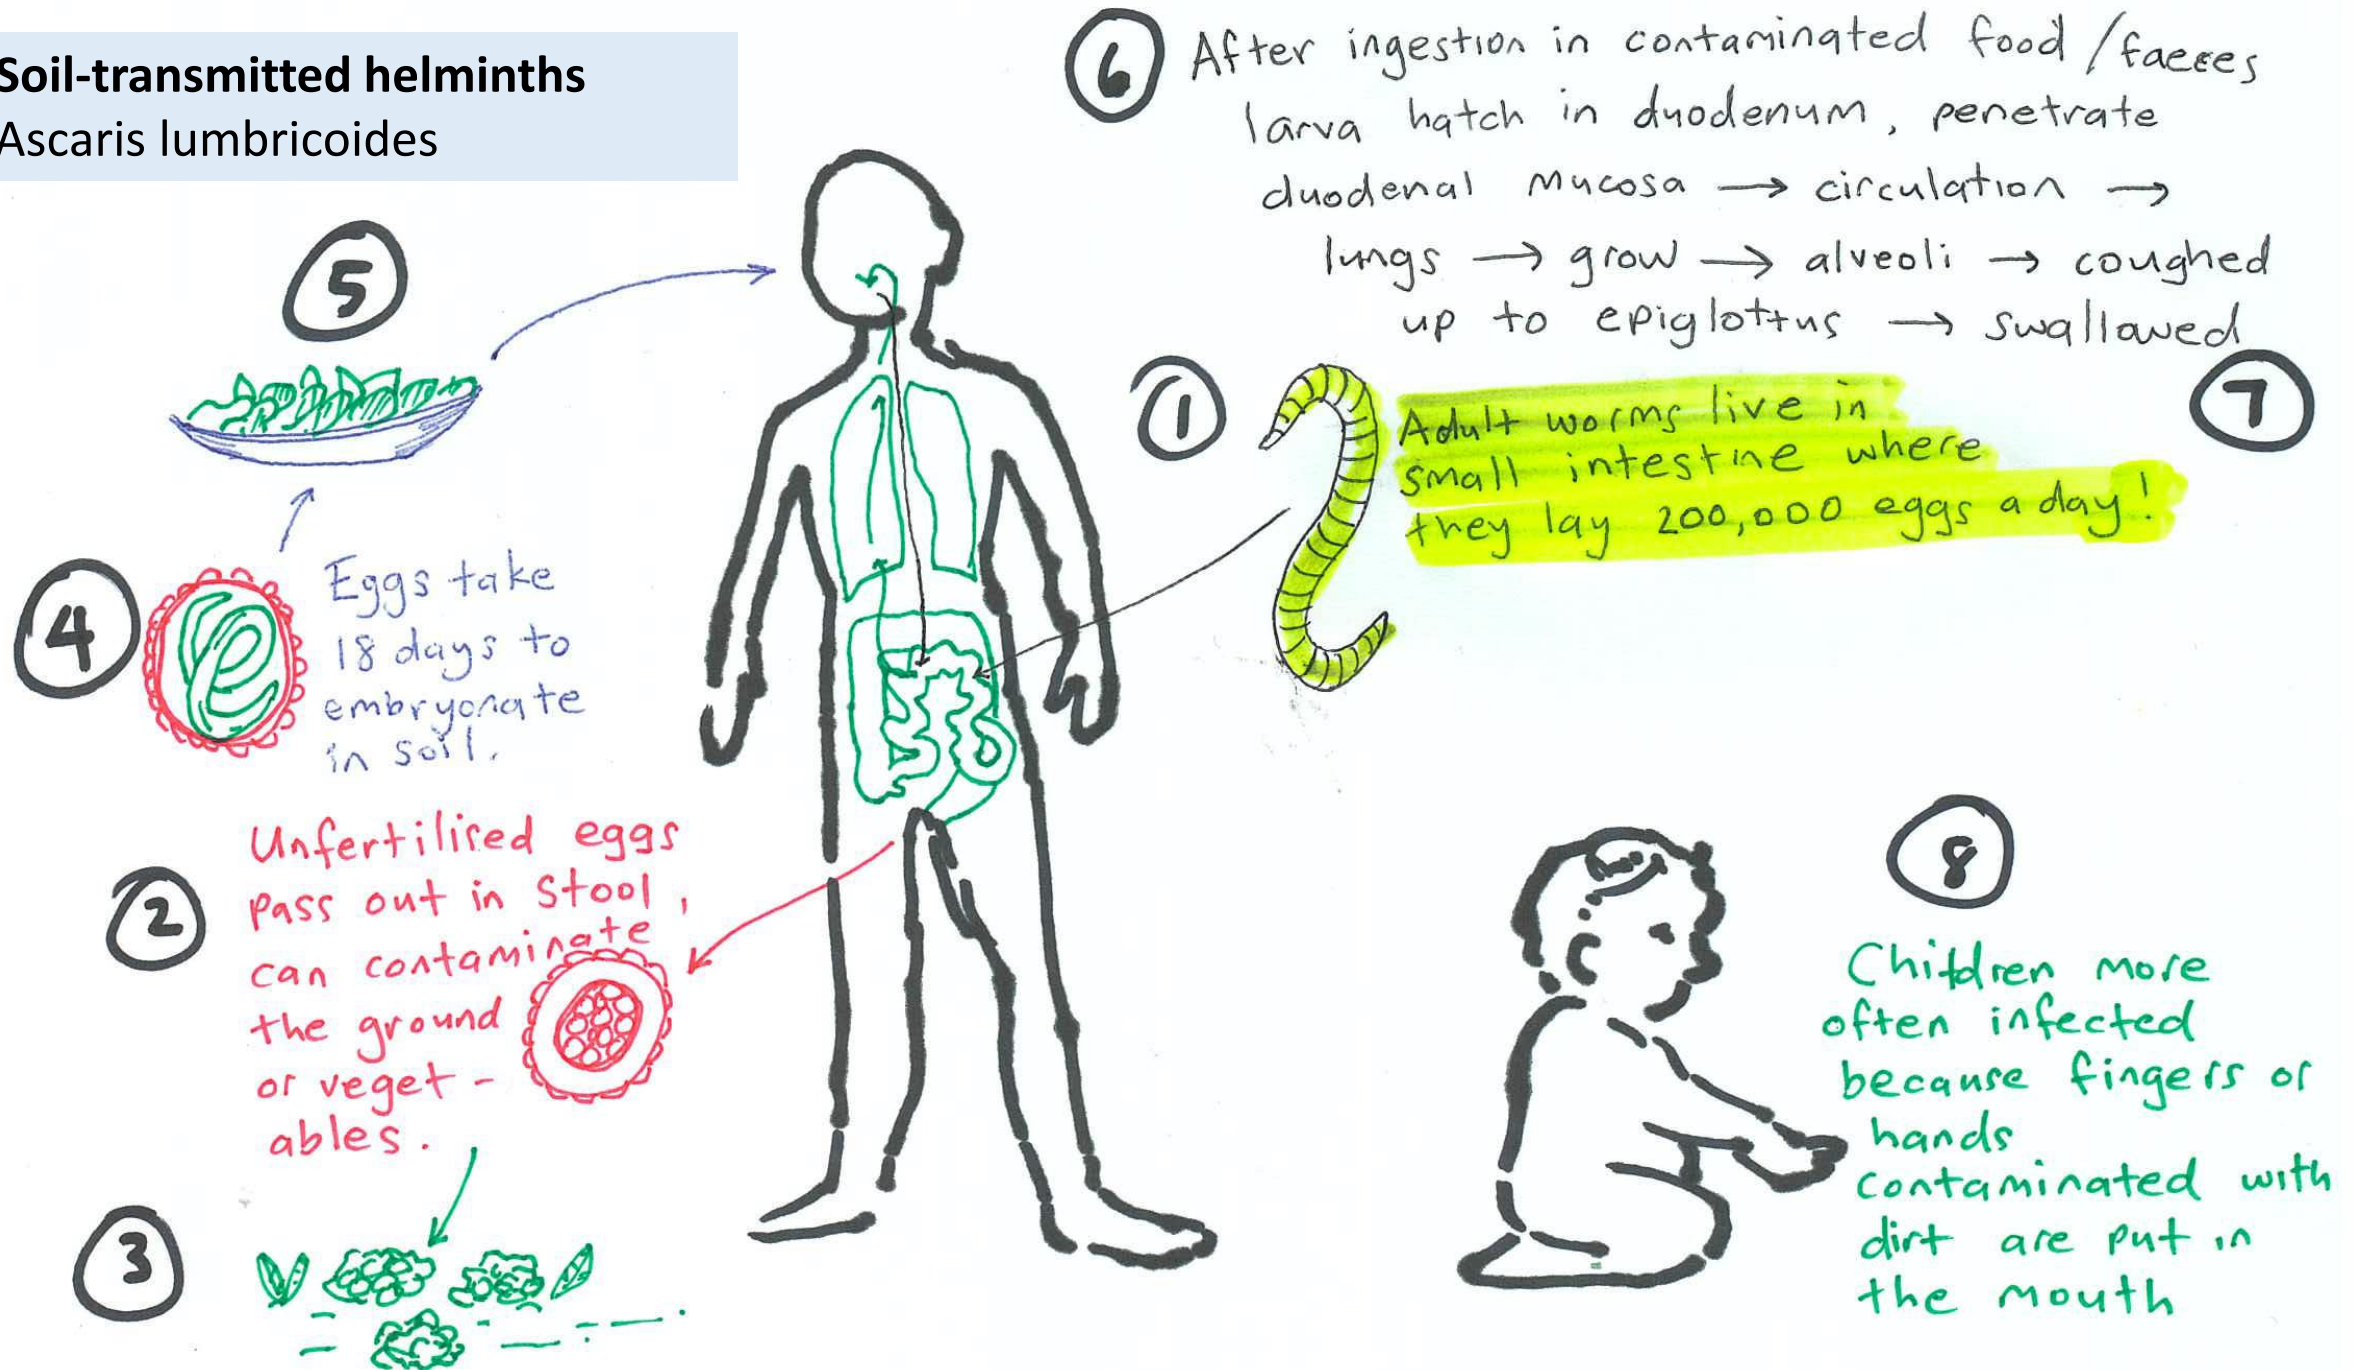 Soil-transmitted helminths
Ascaris lumbricoides
6
After ingestion in contaminated food / faeces
larva hatch in duodenum, penetrate
duodenal mucosa → circulation →
lungs → grow → alveoli → coughed
up to epiglottus → swallowed
7
1
Adult worms live in
small intestine where
they lay 200,000 eggs a day!
5
4
Eggs take
18 days to
embryonate
in soil.
2
Unfertilised eggs
pass out in stool,
can contaminate
the ground
or veget-
ables.
3
8
Children more
often infected
because fingers or
hands
contaminated with
dirt are put in
the mouth